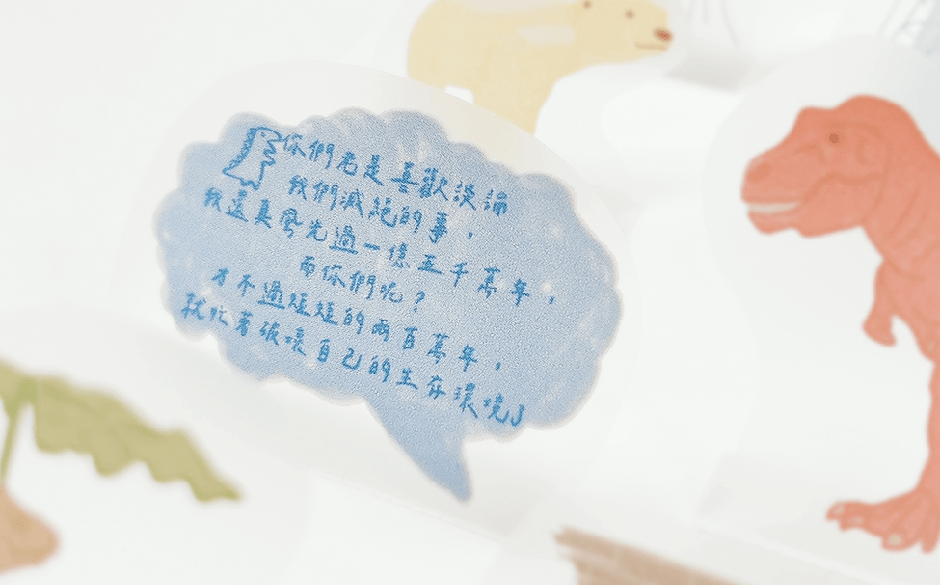 你們老是喜歡談論
我們滅絕的事，
我還真風光過一億五千萬年，
而你們呢？
才不過短短的兩百萬年，
就忙著破壞自己的生存環境」